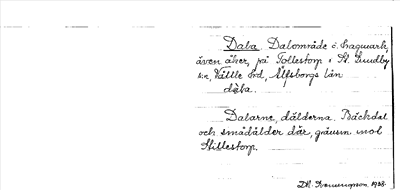 Daba Dalområde o. hagmark,
även åker, på Tollestorp i St. Lundby
s:n, Vättle hd, Älfsborgs län
daba.
Dalarne, dälderna. Bäckdal
och smådälder där, gränsn. mot
Hillestorp.
1938.